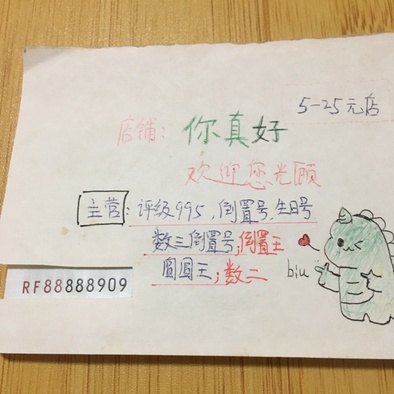 5-25元店
店铺：你真好
欢迎您光顾
主营：评级995，倒置号，生日号
数三倒置号，倒置王
圆圆王；数二
biu
RF88888909